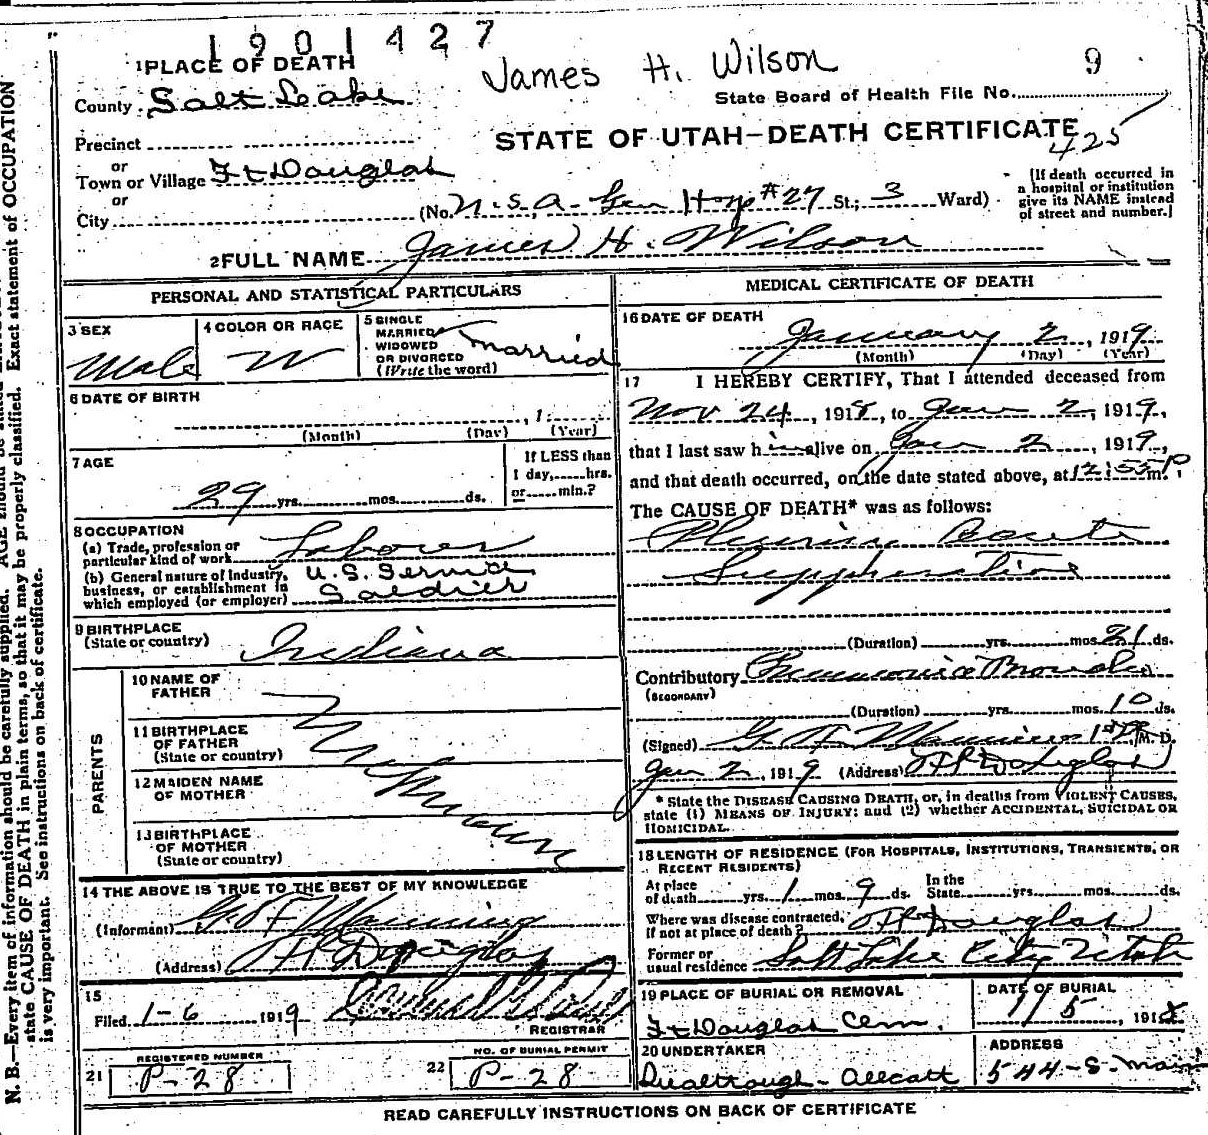 1901427
James H. Wilson
9
1 PLACE OF DEATH
County Salt Lake
State Board of Health File No.
Precinct
STATE OF UTAH—DEATH CERTIFICATE
425
or
Town or Village Ft Douglas
or
City
(No. U.S.A. Gen Hosp #27 St.; 3 Ward)
(If death occurred in
a hospital or institution
give its NAME instead
of street and number.)
2 FULL NAME James H. Wilson
PERSONAL AND STATISTICAL PARTICULARS
3 SEX
Male
4 COLOR OR RACE
W
5 SINGLE
MARRIED
WIDOWED
OR DIVORCED
(Write the word)
Married
6 DATE OF BIRTH
, 1
(Month) (Day) (Year)
7 AGE
29 yrs. mos. ds.
If LESS than
1 day, hrs.
or min.?
8 OCCUPATION
(a) Trade, profession or
particular kind of work
Laborer
(b) General nature of Industry,
business, or establishment in
which employed (or employer)
U.S. Service
Soldier
9 BIRTHPLACE
(State or country)
Indiana
PARENTS
10 NAME OF
FATHER
11 BIRTHPLACE
OF FATHER
(State or country)
12 MAIDEN NAME
OF MOTHER
13 BIRTHPLACE
OF MOTHER
(State or country)
Unknown
14 THE ABOVE IS TRUE TO THE BEST OF MY KNOWLEDGE
(Informant) Geo F Manning
(Address) Ft Douglas
15
Filed 1-6 1919
REGISTRAR
REGISTERED NUMBER
21 P-28
NO. OF BURIAL PERMIT
22 P-28
MEDICAL CERTIFICATE OF DEATH
16 DATE OF DEATH
January 2, 1919
(Month) (Day) (Year)
17 I HEREBY CERTIFY, That I attended deceased from
Nov 24, 1918, to Jan 2, 1919,
that I last saw him alive on Jan 2, 1919,
and that death occurred, on the date stated above, at 12:55 P m.
The CAUSE OF DEATH* was as follows:
Pleurisy Acute
Suppurative
(Duration) yrs. mos. 21 ds.
Contributory Pneumonia Broncho
(SECONDARY)
(Duration) yrs. mos. 10 ds.
(Signed) G. F. Manning M. D.
Jan 2, 1919 (Address) Ft Douglas
* State the DISEASE CAUSING DEATH, or, in deaths from VIOLENT CAUSES,
state (1) MEANS OF INJURY; and (2) whether ACCIDENTAL, SUICIDAL OR
HOMICIDAL.
18 LENGTH OF RESIDENCE (FOR HOSPITALS, INSTITUTIONS, TRANSIENTS, OR
RECENT RESIDENTS)
At place
of death yrs. 1 mos. 9 ds.
In the
State yrs. mos. ds.
Where was disease contracted,
if not at place of death? Ft Douglas
Former or
usual residence Salt Lake City Utah
19 PLACE OF BURIAL OR REMOVAL
Ft Douglas Cem.
DATE OF BURIAL
1/5, 1918
20 UNDERTAKER
ADDRESS
544-S. Main
READ CAREFULLY INSTRUCTIONS ON BACK OF CERTIFICATE
N. B.—Every item of information should be carefully supplied. AGE should be
state CAUSE OF DEATH in plain terms, so that it may be properly classified. Exact statement of OCCUPATION
is very important. See instructions on back of certificate.